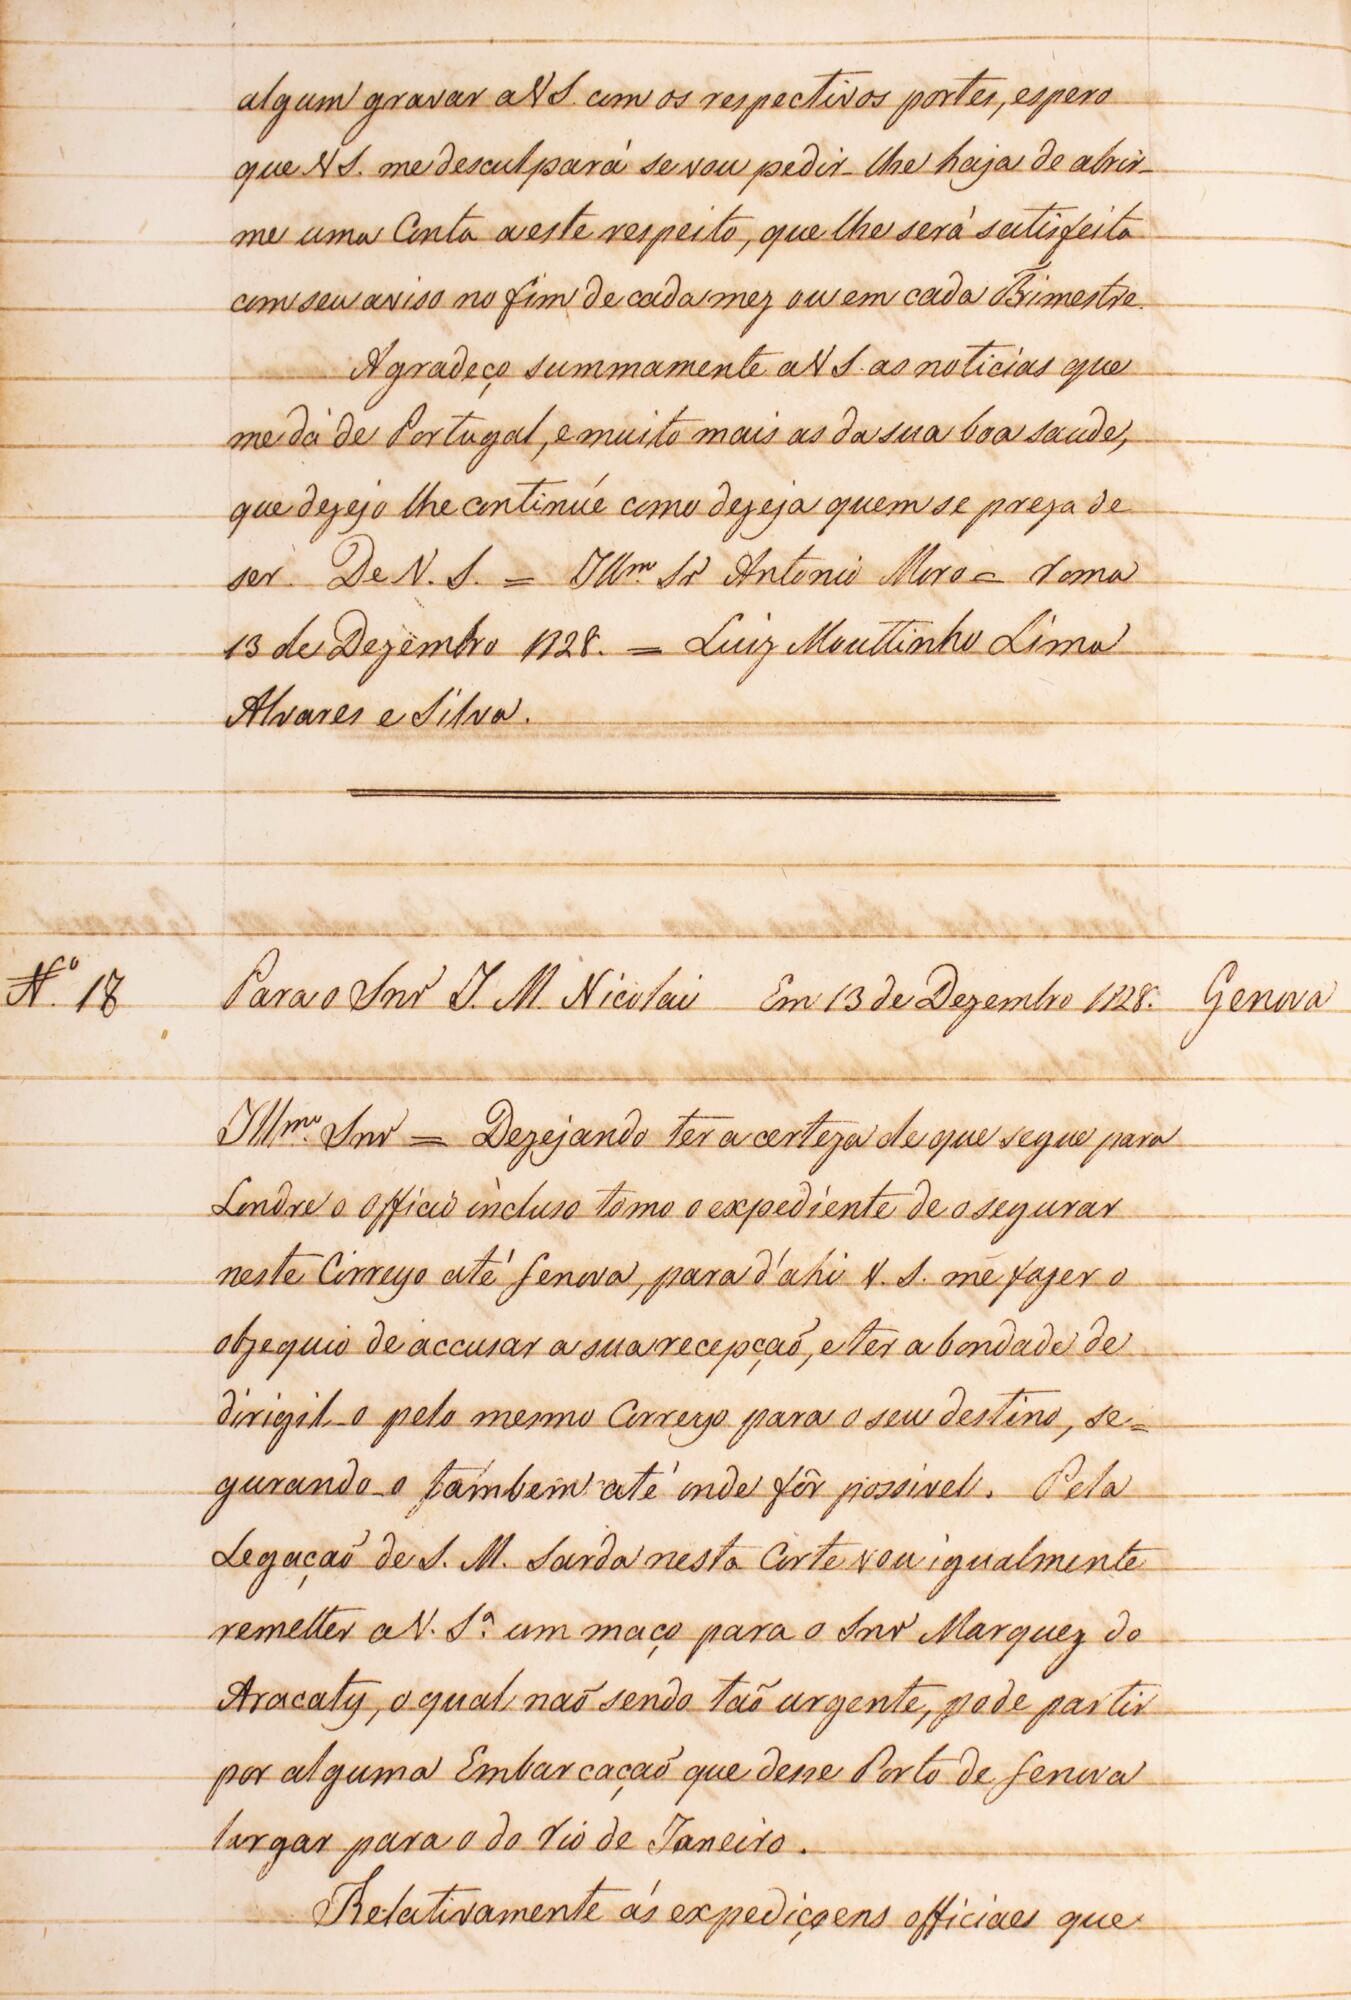 algum gravar a V S. com os respectivos portes, espero
que V S. me desculpará se vou pedir-lhe haja de abrir-
me uma Conta a este respeito, que lhe será satisfeita
com seu aviso no fim de cada mez ou em cada Bimestre.
Agradeço summamente a V S. as noticias que
me dá de Portugal, e muito mais as da sua boa saude,
que dezejo lhe continúe como dezeja quem se preza de
ser. De V. S. = Illmo Sr Antonio Moro = Roma
13 de Dezembro 1828. = Luiz Mouttinho Lima
Alvares e Silva.
No. 18 Para o Snr J. M. Nicolai Em 13 de Dezembro 1828. Genova
Illmo. Snr = Dezejando ter a certeza de que segue para
Londres o officio incluso tomo o expediente de o segurar
neste Correyo até Genova, para d'ahi V. S. me fazer o
obzequio de accusar a sua recepçaõ, e ter a bondade de
dirigil-o pelo mesmo Correyo para o seu destino, se=
gurando-o tambem até onde fôr possivel. Pela
Legaçaõ de S. M. Sarda nesta Corte vou igualmente
remetter a V. Sa. um maço para o Snr Marquez do
Aracaty, o qual naõ sendo taõ urgente, pode partir
por alguma Embarcaçaõ que desse Porto de Genova
largar para o do Rio de Janeiro.
Relativamente ás expediçoens officiaes que